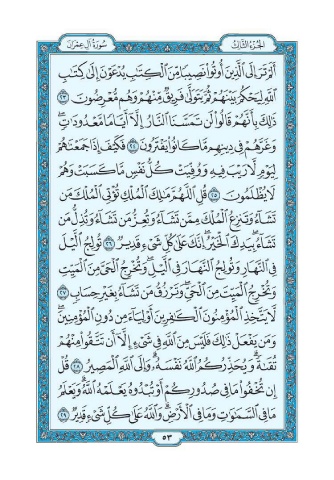 الجزء الثالث
سورة آل عمران
ألم تر إلى الذين أوتوا نصيبا من الكتب يدعون إلى كتب
الله ليحكم بينهم ثم يتولى فريق منهم وهم معرضون ٢٣
ذلك بأنهم قالوا لن تمسنا النار إلا أياما معدودات
وغرهم في دينهم ما كانوا يفترون ٢٤ فكيف إذا جمعنهم
ليوم لا ريب فيه ووفيت كل نفس ما كسبت وهم
لا يظلمون ٢٥ قل اللهم ملك الملك تؤتي الملك من
تشاء وتنزع الملك ممن تشاء وتعز من تشاء وتذل من
تشاء بيدك الخير إنك على كل شيء قدير ٢٦ تولج اليل
في النهار وتولج النهار في اليل وتخرج الحي من الميت
وتخرج الميت من الحي وترزق من تشاء بغير حساب ٢٧
لا يتخذ المؤمنون الكفرين أولياء من دون المؤمنين
ومن يفعل ذلك فليس من الله في شيء إلا أن تتقوا منهم
تقىة ويحذركم الله نفسه وإلى الله المصير ٢٨ قل
إن تخفوا ما في صدوركم أو تبدوه يعلمه الله ويعلم
ما في السموت وما في الأرض والله على كل شيء قدير ٢٩
٥٣